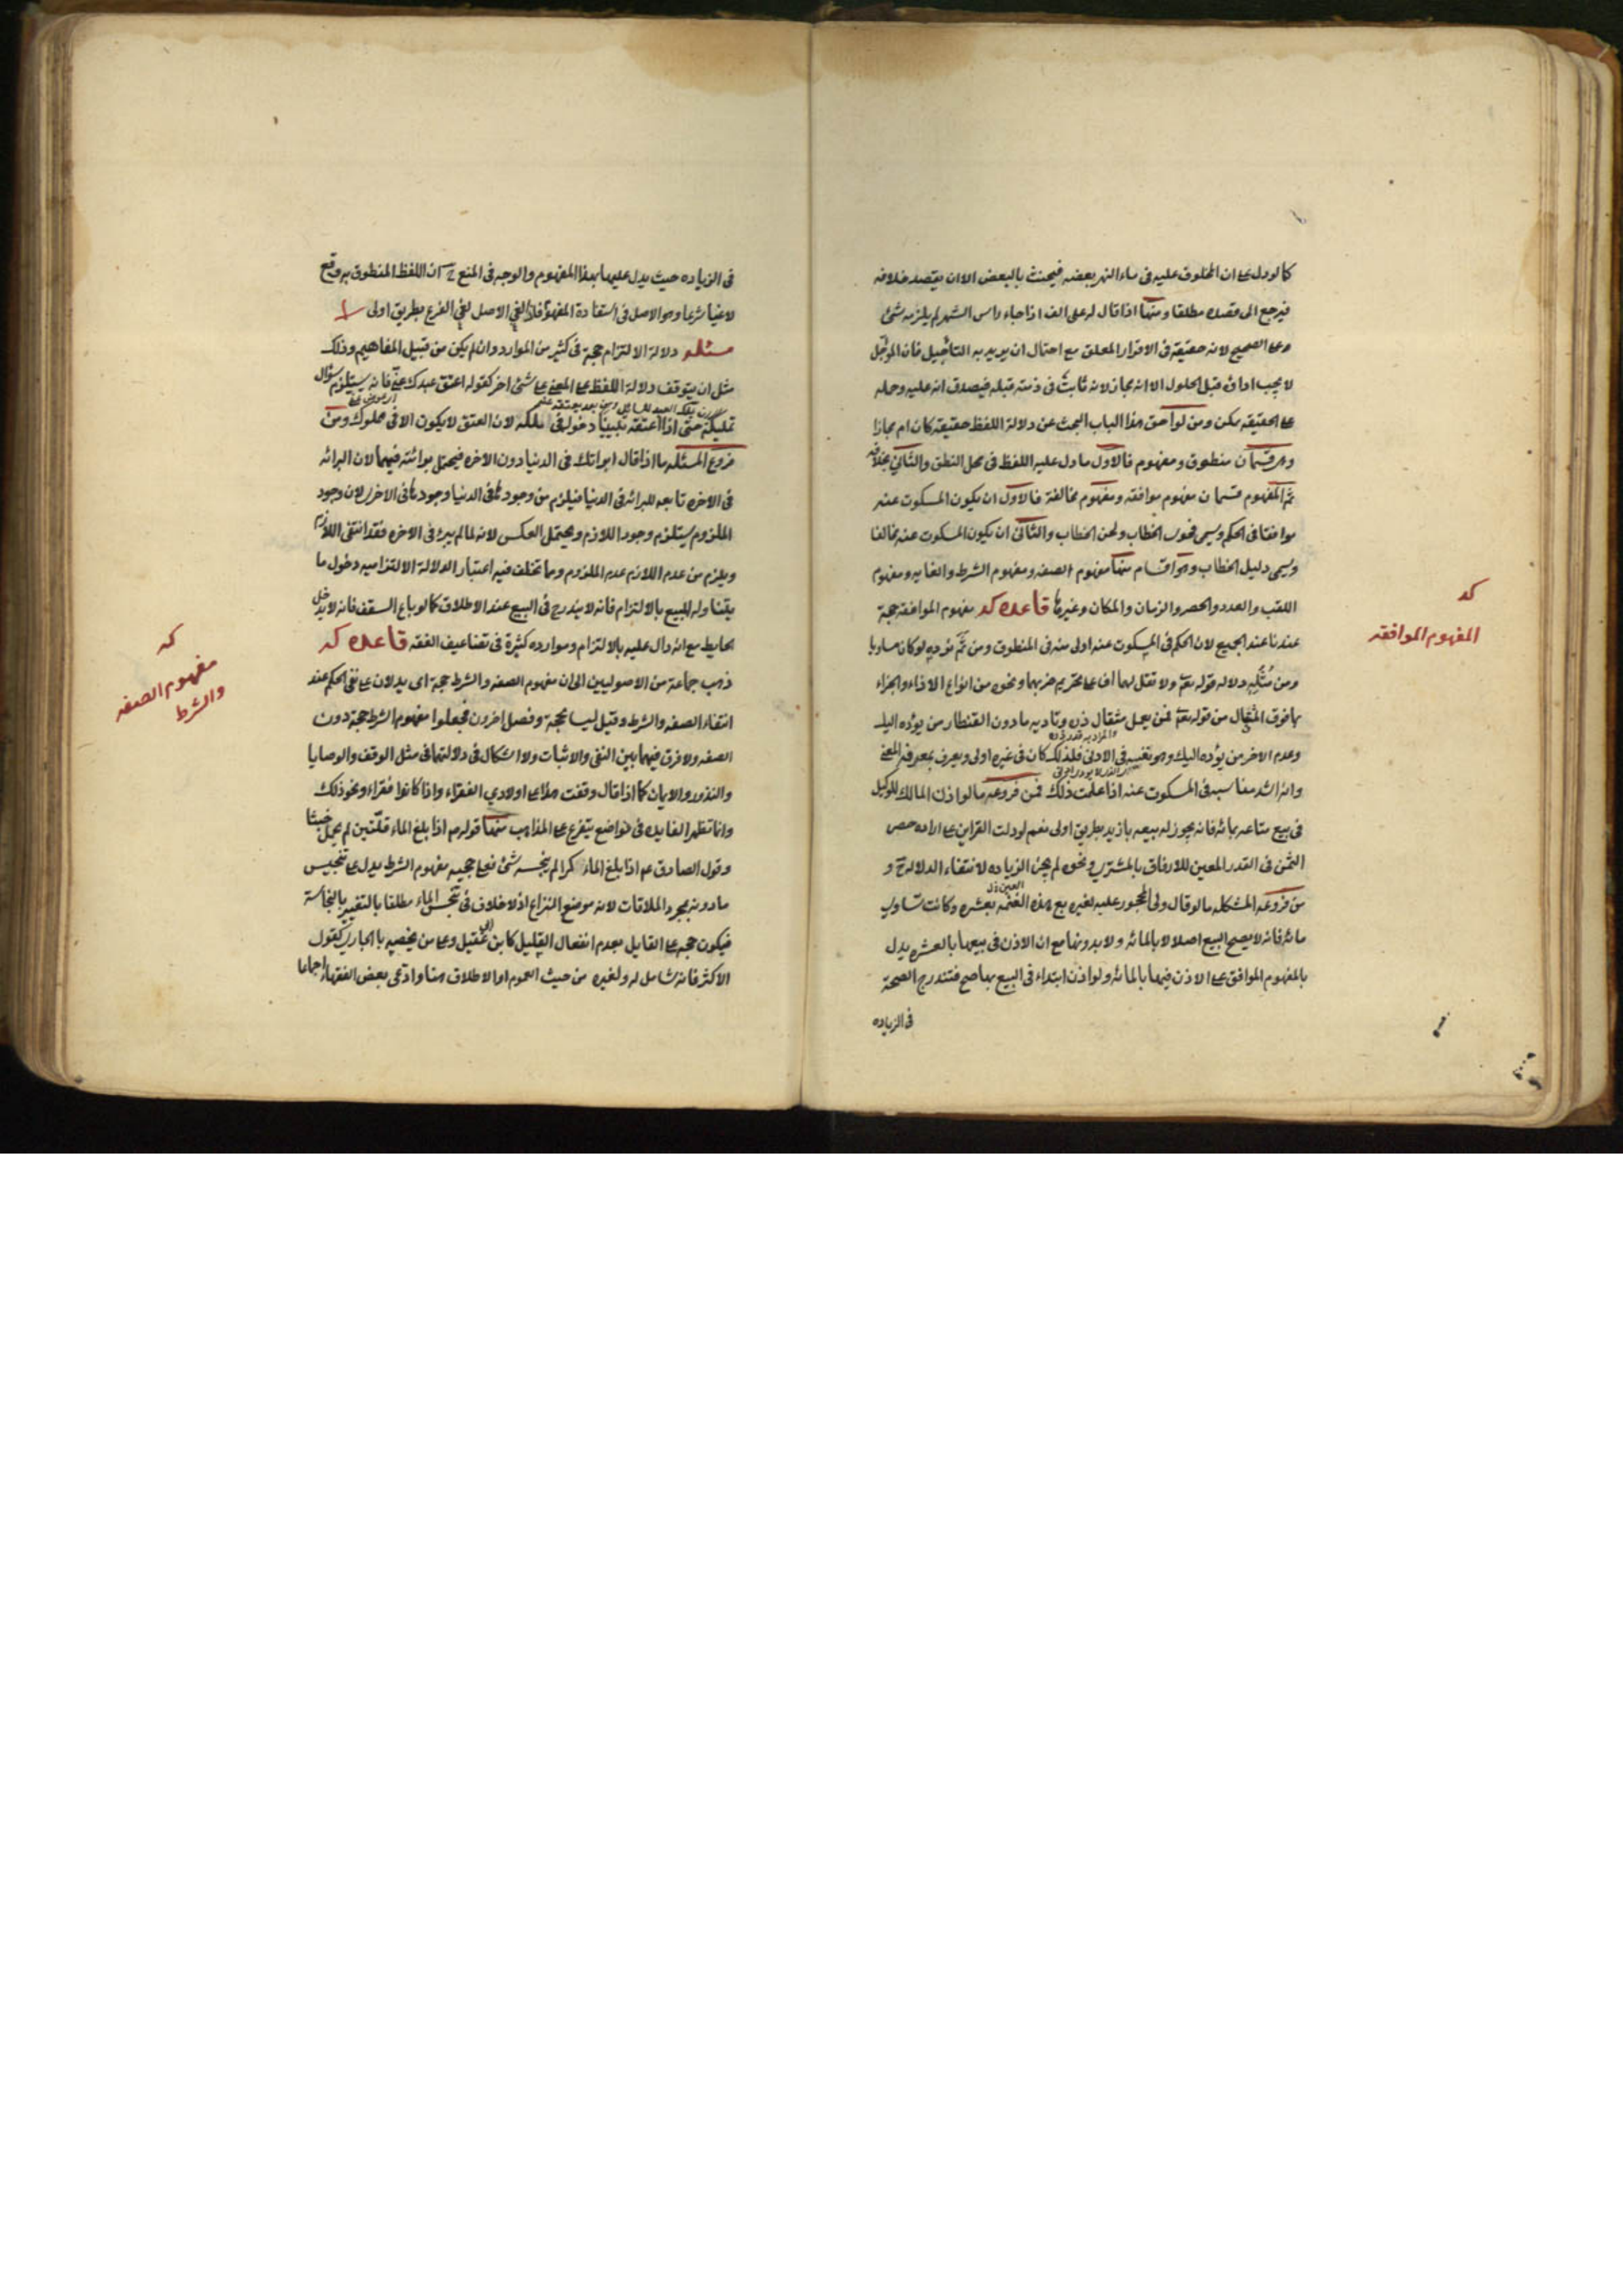 كما لو دل على ان المحلوف عليه فى ماء النهر بعضه فيحنث بالبعض الا ان يقصد خلافه
فيرجع الى قصده مطلقا ومنها اذا قال له على الف اذا جاء راس الشهر لم يلزمه شئ
وعلى الصحيح لانه حقيقة فى الاقرار المعلق مع احتمال ان يريد به التأجيل فان المؤجل
لا يجب اداؤه قبل الحلول الا انه مجاز لانه ثابت فى ذمته قبله فيصدق انه عليه وحمله
على الحقيقة ممكن ومن لواحق هذا الباب البحث عن دلالة اللفظ حقيقة كان ام مجازا
وهى قسمان منطوق ومفهوم فالاول ما دل عليه اللفظ فى محل النطق والثانى بخلافه
ثم المفهوم قسمان مفهوم موافقه ومفهوم مخالفة فالاول ان يكون المسكوت عنه
موافقا فى الحكم ويسمى فحوى الخطاب ولحن الخطاب والثانى ان يكون المسكوت عنه مخالفا
ويسمى دليل الخطاب وهو اقسام منها مفهوم الصفه ومفهوم الشرط والغايه ومفهوم
اللقب والعدد والحصر والزمان والمكان وغيرها قاعده كد مفهوم الموافقه حجة
عندنا عند الجميع لان الحكم فى المسكوت عنه اولى منه فى المنطوق ومن ثم نؤديه لو كان مساويا
ومن مثله دلاله قوله تعالى ولا تقل لهما اف على تحريم ضربهما ونحوه من انواع الاذاء والجزاء
بما فوق المثقال من قوله تعالى فمن يعمل مثقال ذره وتاديه ما دون القنطار من يؤده اليك
وعدم الاخر من يؤده اليك وهو تنبيه فى الادنى فلذلك كان فى غيره اولى ويعرف بمعرفة المعنى
وانه اشد مناسبه فى المسكوت عنه اذا علمت ذلك فمن فروعه ما لو اذن المالك للوكيل
فى بيع متاعه بمائة فانه يجوز له بيعه بازيد بطريق اولى نعم لو دلت القراين على اراده حصر
الثمن فى القدر المعين للارفاق بالمشترى ونحوه لم يجز الزياده لانتفاء الدلالة ح و
من فروعه المشكله ما لو قال ولى المحجور عليه لغيره بع هذه العين بعشره وكانت تساوى
مائة فانه لا يصح البيع اصلا لا بالمائه ولا بدونها مع ان الاذن فى بيعها بالعشره يدل
بالمفهوم الموافق على الاذن فيها بالمائه ولو اذن ابتداء فى البيع بها صح فتندرج الصحة
فى الزياده
كد
المفهوم الموافقه
فى الزياده حيث يدل عليها بهذا المفهوم والوجه فى المنع ح ان اللفظ المنطوق به وقع
لاغيا شرعا وهو الاصل فى استفادة المفهوم فاذا لغى الاصل لغى الفرع بطريق اولى
مسئله دلالة الالتزام حجة فى كثير من الموارد وان لم يكن من قبيل المفاهيم وذلك
مثل ان يتوقف دلالة اللفظ على المعنى على شئ اخر كقوله اعتق عبدك عنى فانه يستلزم سؤال
تمليكه حتى اذا اعتقه تبينا دخوله فى ملكه لان العتق لا يكون الا فى مملوك ومن
فروع المسئله ما اذا قال ابراتك فى الدنيا دون الاخره فيحتمل برائته فيهما لان البرائه
فى الاخره تابعه للبرائه فى الدنيا فيلزم من وجودها فى الدنيا وجودها فى الاخرى لان وجود
الملزوم يستلزم وجود اللازم ويحتمل العكس لانه لما لم يبرء فى الاخره فقد انتفى اللازم
ويلزم من عدم اللازم عدم الملزوم وما تخلف فيه اعتبار الدلالة الالتزاميه دخول ما
يتناوله المبيع بالالتزام فانه لا يندرج فى البيع عند الاطلاق كما لو باع السقف فانه لا يدخل
الحايط مع انه دال عليه بالالتزام وموارده كثيرة فى تضاعيف الفقه قاعده كه
ذهب جماعة من الاصوليين الى ان مفهوم الصفه والشرط حجة اى يدلان على نفى الحكم عند
انتفاء الصفه والشرط وقيل ليسا بحجة وفصل اخرون فجعلوا مفهوم الشرط حجة دون
الصفه ولا فرق فيهما بين النفى والاثبات ولا اشكال فى دلالتهما فى مثل الوقف والوصايا
والنذور والايمان كما اذا قال وقفت هذا على اولادى الفقراء واذا كانوا فقراء ونحو ذلك
وانما تظهر الفايده فى مواضع يتفرع على المذاهب منها قوله ص اذا بلغ الماء قلتين لم يحمل خبثا
وقول الصادق عم اذا بلغ الماء كرا لم ينجسه شئ فعلى حجيه مفهوم الشرط يدل على تنجيس
ما دونه بمجرد الملاقات لانه موضع النزاع اذ لا خلاف فى تنجس الماء مطلقا بالتغير بالنجاسة
فيكون حجه على القايل بعدم انفعال القليل كابن ابى عقيل وعلى من يخصه بالجارى كقول
الاكثر فانه شامل له ولغيره من حيث العموم او الاطلاق هنا وادعى بعض الفقهاء اجماعا
كه
مفهوم الصفه
والشرط